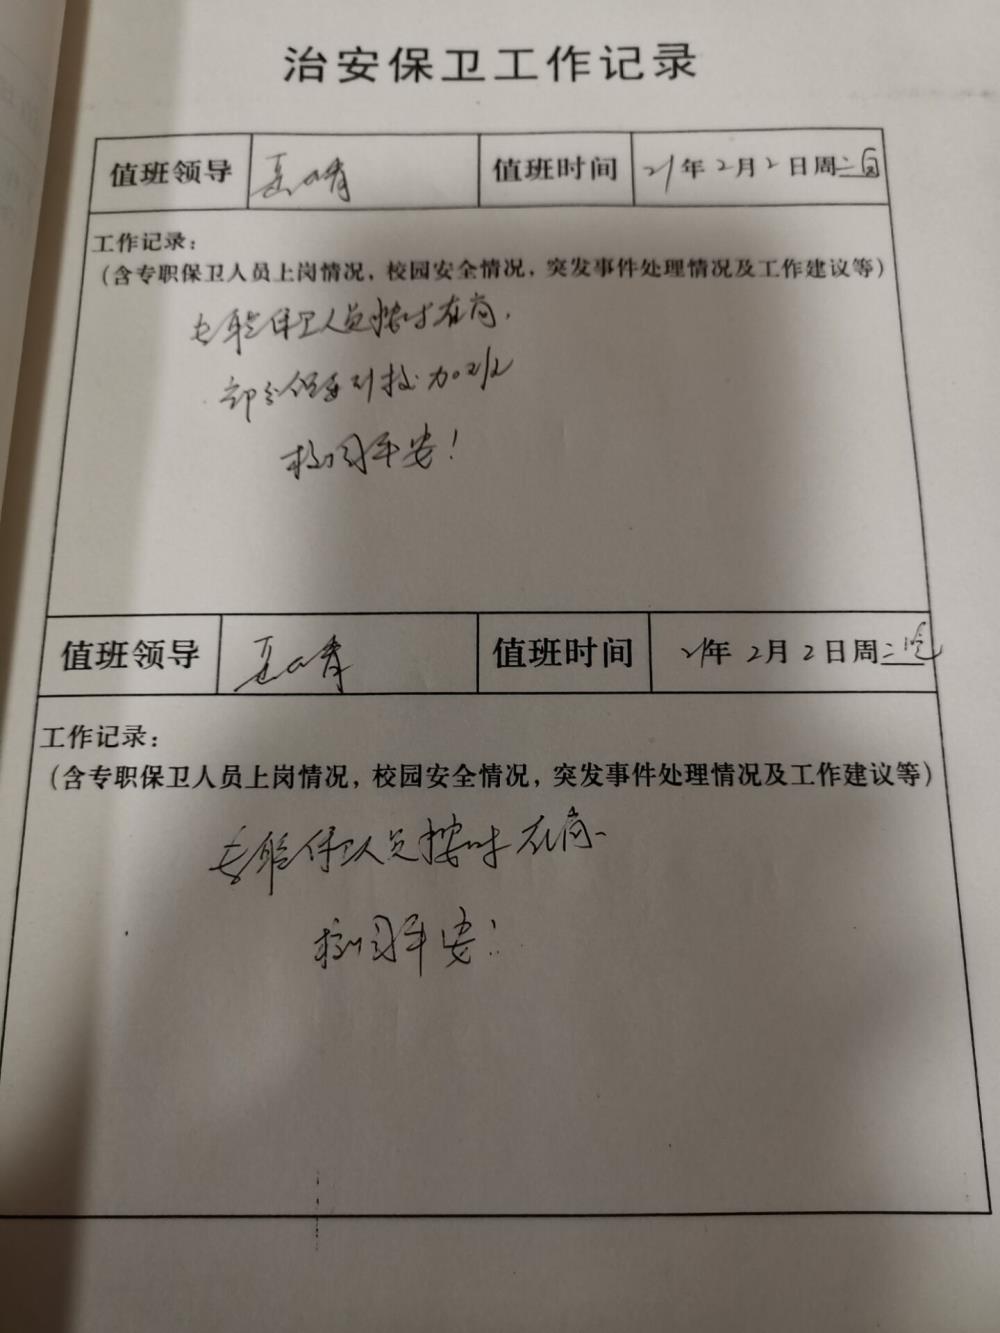 治安保卫工作记录
值班领导 值班时间 21年2月2日周二
工作记录：
（含专职保卫人员上岗情况，校园安全情况，突发事件处理情况及工作建议等）
专职保卫人员按时在岗.
部分 到校加班
校园平安！
值班领导 值班时间 21年2月2日周二晚
工作记录：
（含专职保卫人员上岗情况，校园安全情况，突发事件处理情况及工作建议等）
专职保卫人员按时在岗.
校园平安！